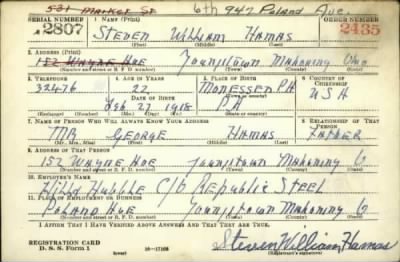 531 Market St 6th 947 Poland Ave.
SERIAL NUMBER 1. NAME (Print) ORDER NUMBER
A2807 STEVEN William HAMAS 2435
(First) (Middle) (Last)
2. ADDRESS (Print)
152 WAYNE Ave Youngstown Mahoning Ohio
(Number and street or R. F. D. number) (Town) (County) (State)
3. TELEPHONE 4. AGE IN YEARS 5. PLACE OF BIRTH 6. COUNTRY OF CITIZENSHIP
32476 22 MONESSEN PA
DATE OF BIRTH PA USA
Feb 27 1918
(Exchange) (Number) (Mo.) (Day) (Yr.) (Town or county) (State or country)
7. NAME OF PERSON WHO WILL ALWAYS KNOW YOUR ADDRESS 8. RELATIONSHIP OF THAT PERSON
MR GEORGE HAMAS FATHER
(Mr., Mrs., Miss) (First) (Middle) (Last)
9. ADDRESS OF THAT PERSON
152 WAYNE Ave Youngstown Mahoning O
(Number and street or R. F. D. number) (Town) (County) (State)
10. EMPLOYER'S NAME
Hubble C/o Republic Steel
11. PLACE OF EMPLOYMENT OR BUSINESS
Poland Ave Youngstown Mahoning O
(Number and street or R. F. D. number) (Town) (County) (State)
I AFFIRM THAT I HAVE VERIFIED ABOVE ANSWERS AND THAT THEY ARE TRUE.
REGISTRATION CARD
D. S. S. Form 1 (over) 16—17105 Steven William Hamas
(Registrant's signature)